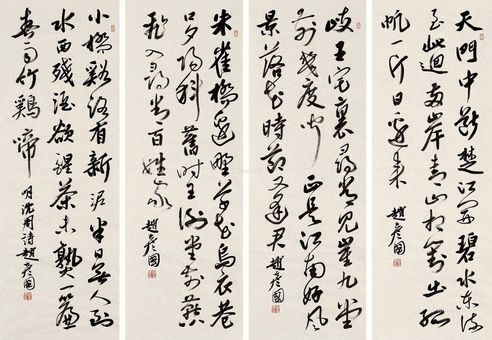 天門中斷楚江開碧水東流
至此迴兩岸青山相對出孤
帆一片日邊來 趙彦國
岐王宅裏尋常見崔九堂
前幾度聞正是江南好風
景落花時節又逢君 趙彦國
朱雀橋邊野草花烏衣巷
口夕陽斜舊時王謝堂前燕
飛入尋常百姓家 趙彦國
小橋谿路有新泥半日無人到
水西殘酒欲醒茶未熟一簾
春雨竹鷄啼 明沈周詩趙彦國